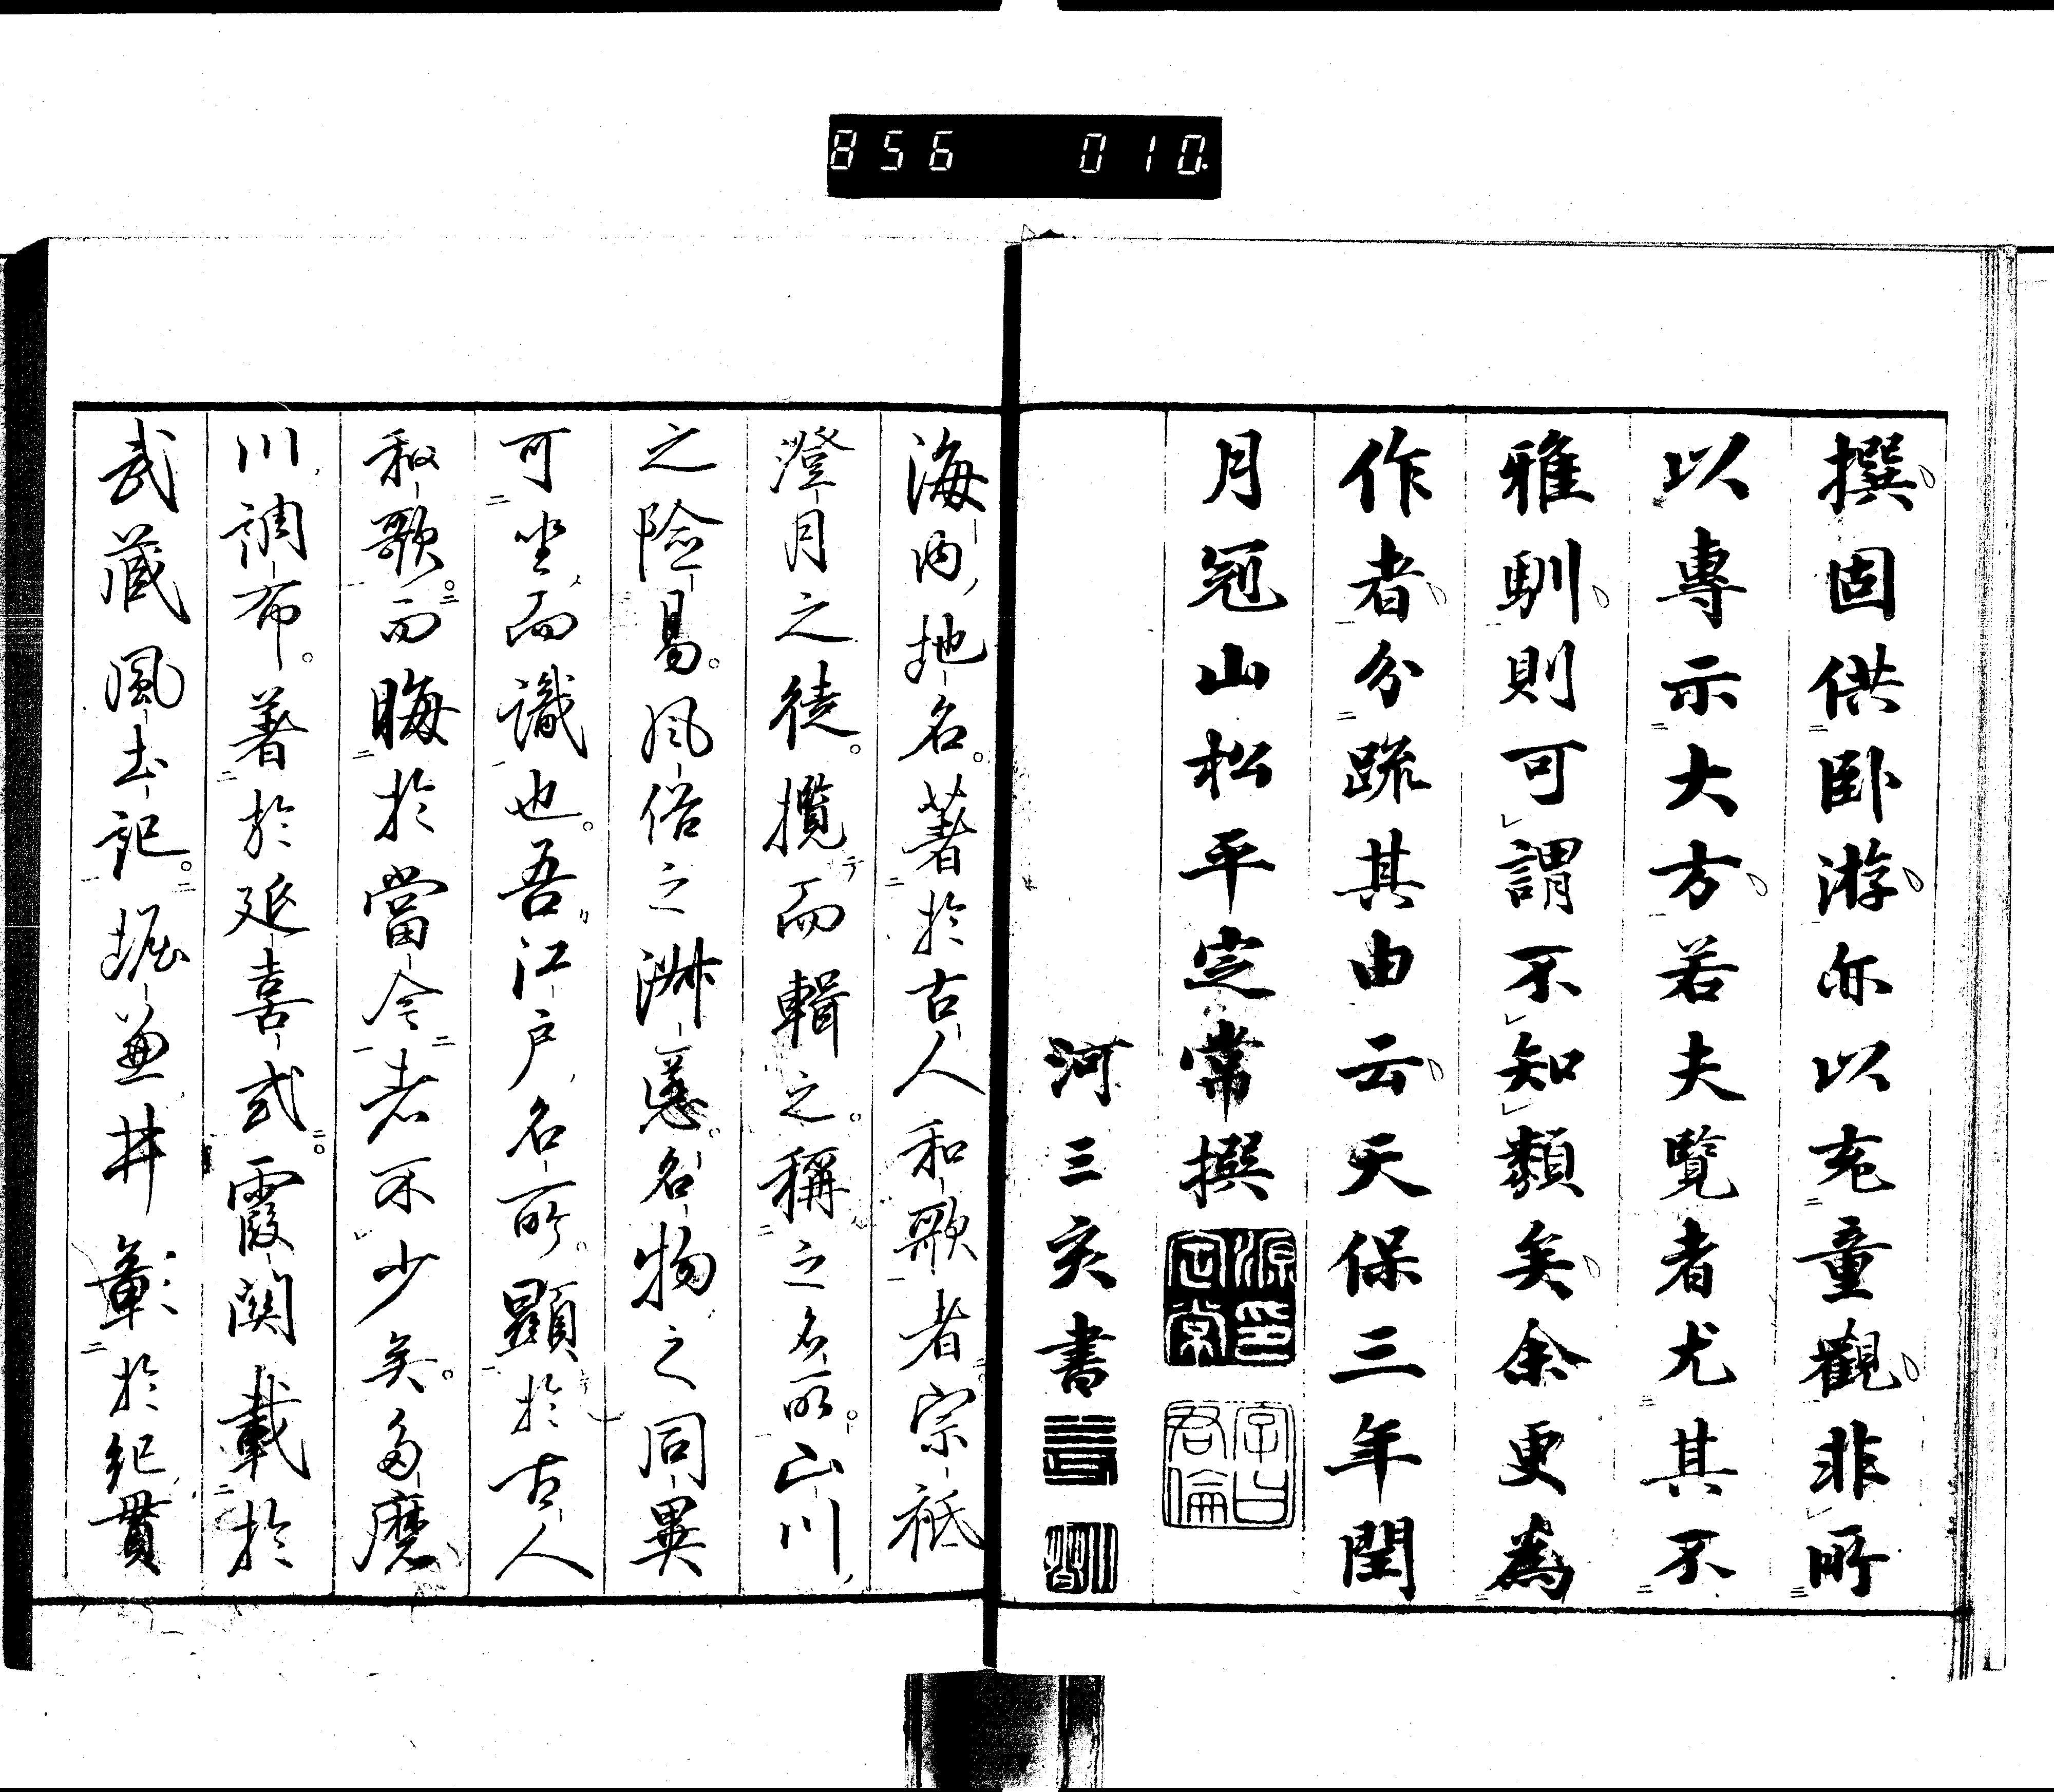 856 010
撰固供臥游亦以充童觀非所
以專示大方若夫覽者尤其不
雅馴則可謂不知類矣余更為
作者分疏其由云天保三年閏
月冠山松平定常撰
源印定常
字曰君倫
河三亥書
海内地名著於古人和歌者宗祇
澄月之徒攬而輯之稱之名所山川
之險易風俗之淋慝名物之同異
可坐而識也吾江戸名所顯於古人
和歌而晦於當今者不少矣多磨
川調布著於延喜式霞関載於
武蔵風土記堀兼井彰於紀貫